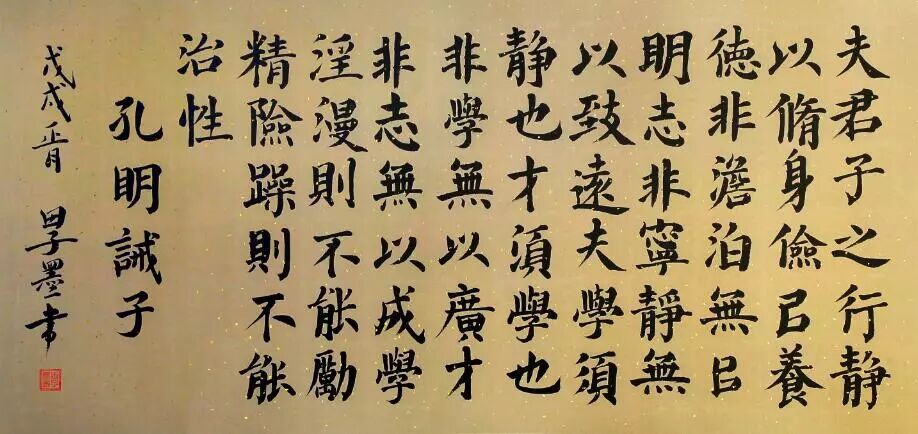 夫君子之行靜
以脩身儉㠯養
徳非澹泊無㠯
明志非寧靜無
以致遠夫學須
靜也才須學也
非學無以廣才
非志無以成學
淫漫則不能勵
精險躁則不能
治性
孔明誡子
戊戌 墨書